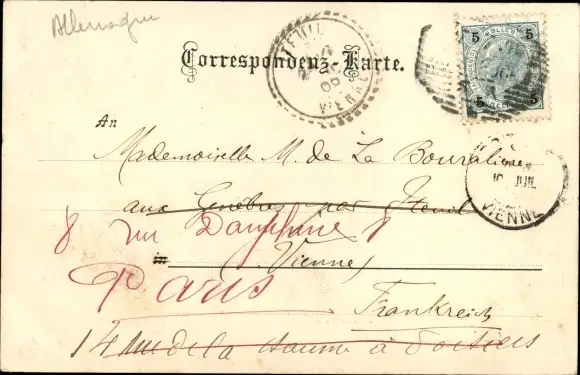 Allemagne
Correspondenz-Karte.
VIENNE
5 5
5 5
An
Mademoiselle M. de La Bouralière
aux Genêbres par
10 JUIL
VIENNE
8 rue Dauphine 8
in Vienne
Paris
Frankreich
14 rue de la chaume à Poitiers